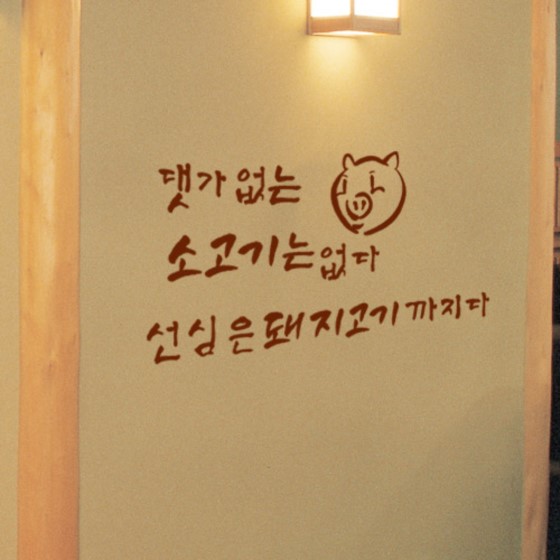 댓가 없는
소고기는 없다
선심은 돼지고기까지다